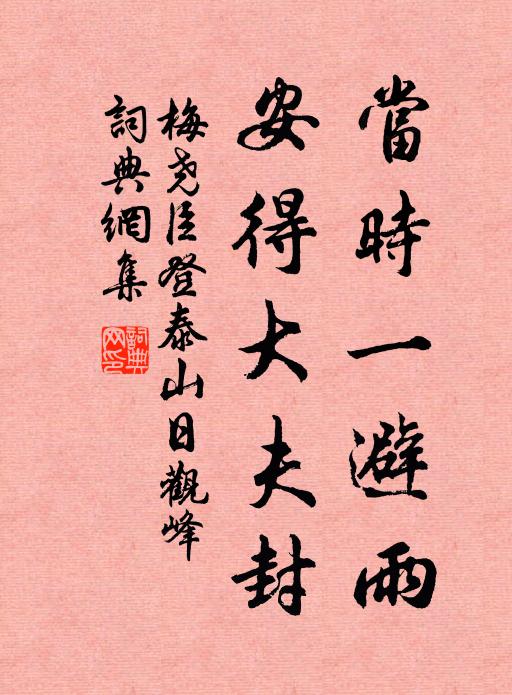 當時一避雨
安得大夫封
梅堯臣登泰山日觀峰
詞典網集
詞典網印